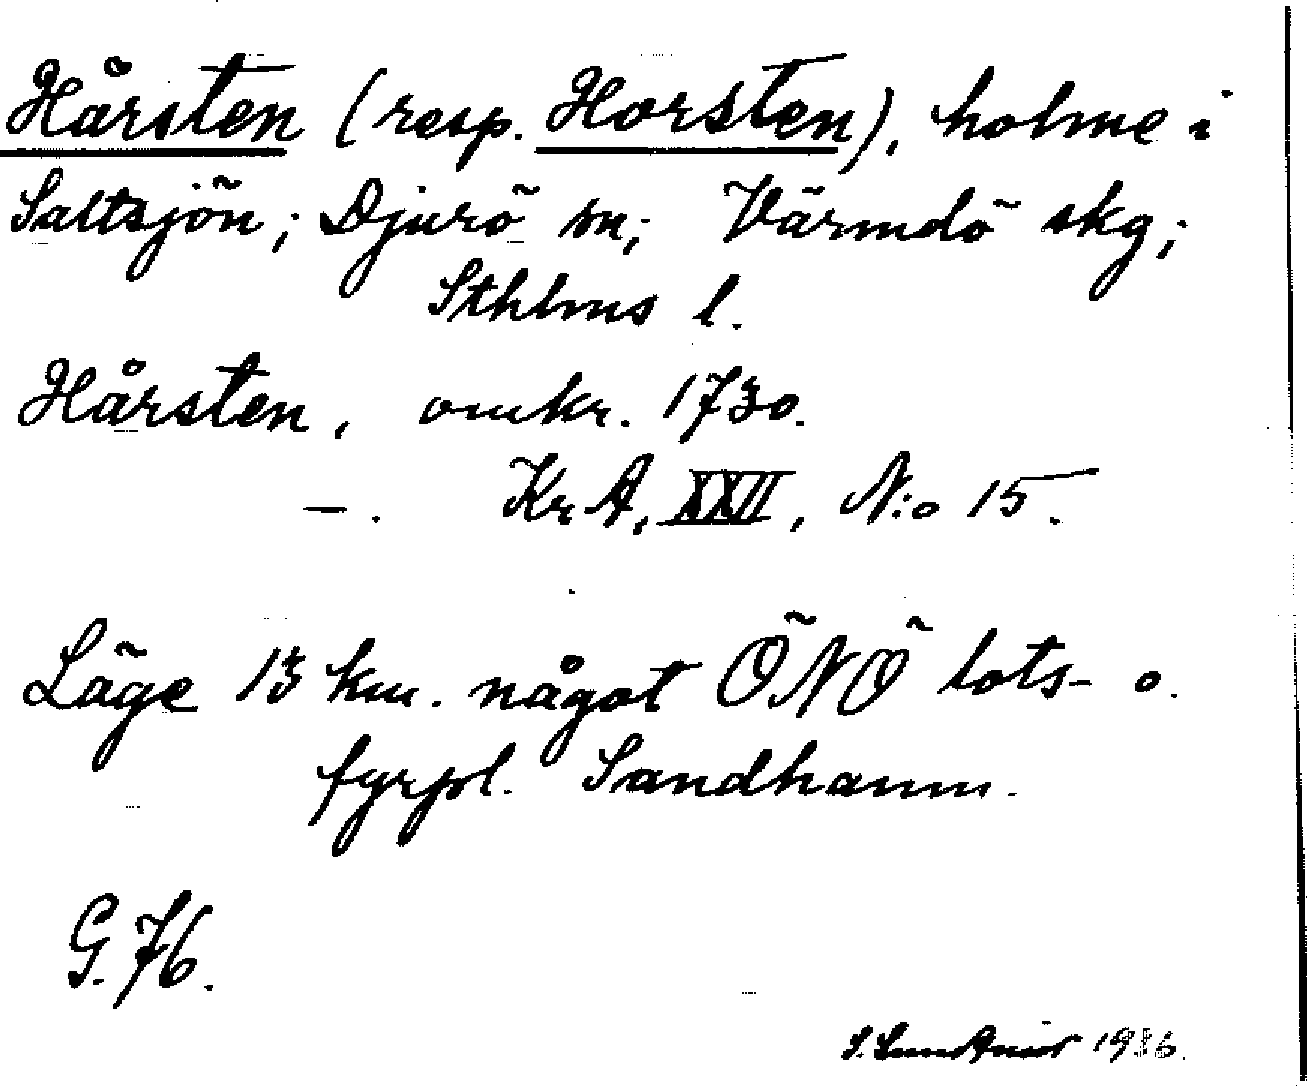 Hårsten (resp. Horsten), holme i
Saltsjön; Djurö sn; Värmdö skg;
Sthlms l.
Hårsten, omkr. 1730.
—. KrA, XXII, N:o 15.
Läge 13 km. något ÖNÖ lots- o.
fyrpl. Sandhamn.
G. 76.
1936.